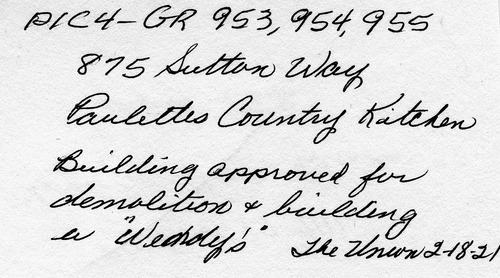 PIC4-GR 953, 954, 955
875 Sutton Way
Paulettes Country Kitchen
Building approved for
demolition & building
a "Wendy's" The Union 2-18-21